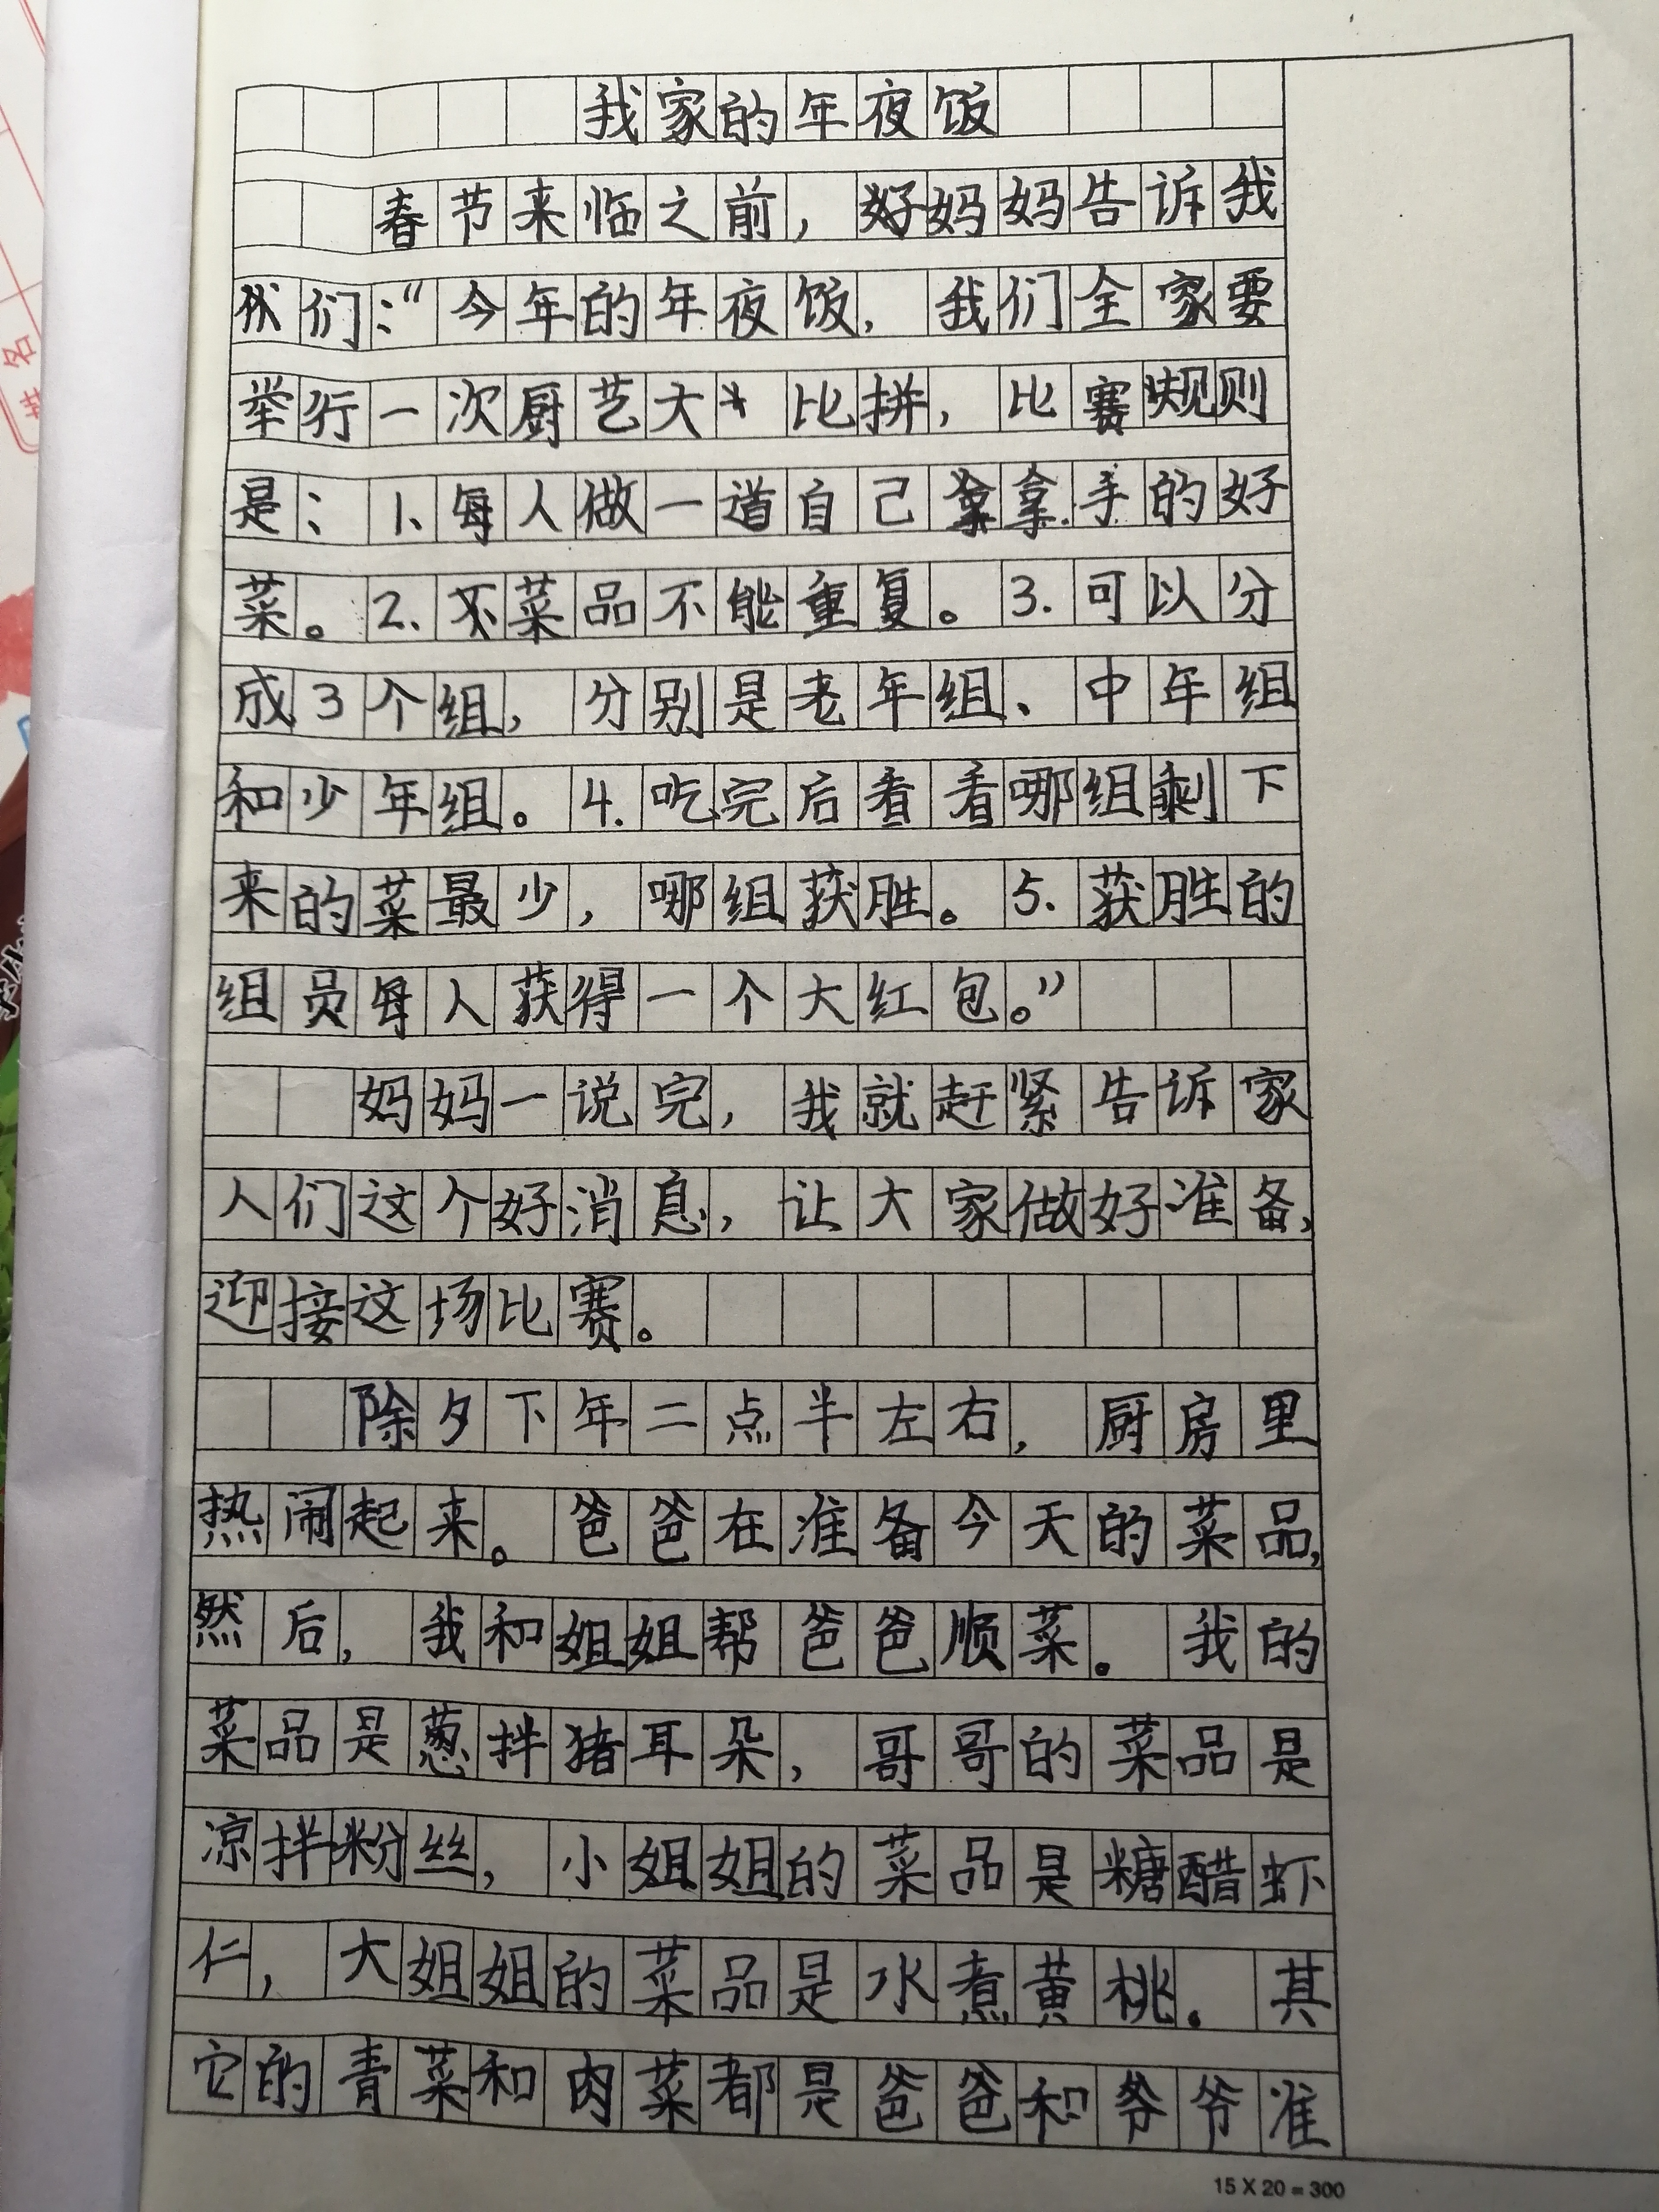 我家的年夜饭
春节来临之前，妈妈告诉我
们：“今年的年夜饭，我们全家要
举行一次厨艺大比拼，比赛规则
是：1、每人做一道自己拿手的好
菜。2、菜品不能重复。3.可以分
成3个组，分别是老年组、中年组
和少年组。4.吃完后看看哪组剩下
来的菜最少，哪组获胜。5.获胜的
组员每人获得一个大红包。”
妈妈一说完，我就赶紧告诉家
人们这个好消息，让大家做好准备，
迎接这场比赛。
除夕下年二点半左右，厨房里
热闹起来。爸爸在准备今天的菜品，
然后，我和姐姐帮爸爸顺菜。我的
菜品是葱拌猪耳朵，哥哥的菜品是
凉拌粉丝，小姐姐的菜品是糖醋虾
仁，大姐姐的菜品是水煮黄桃。其
它的青菜和肉菜都是爸爸和爷爷准
15 X 20 = 300